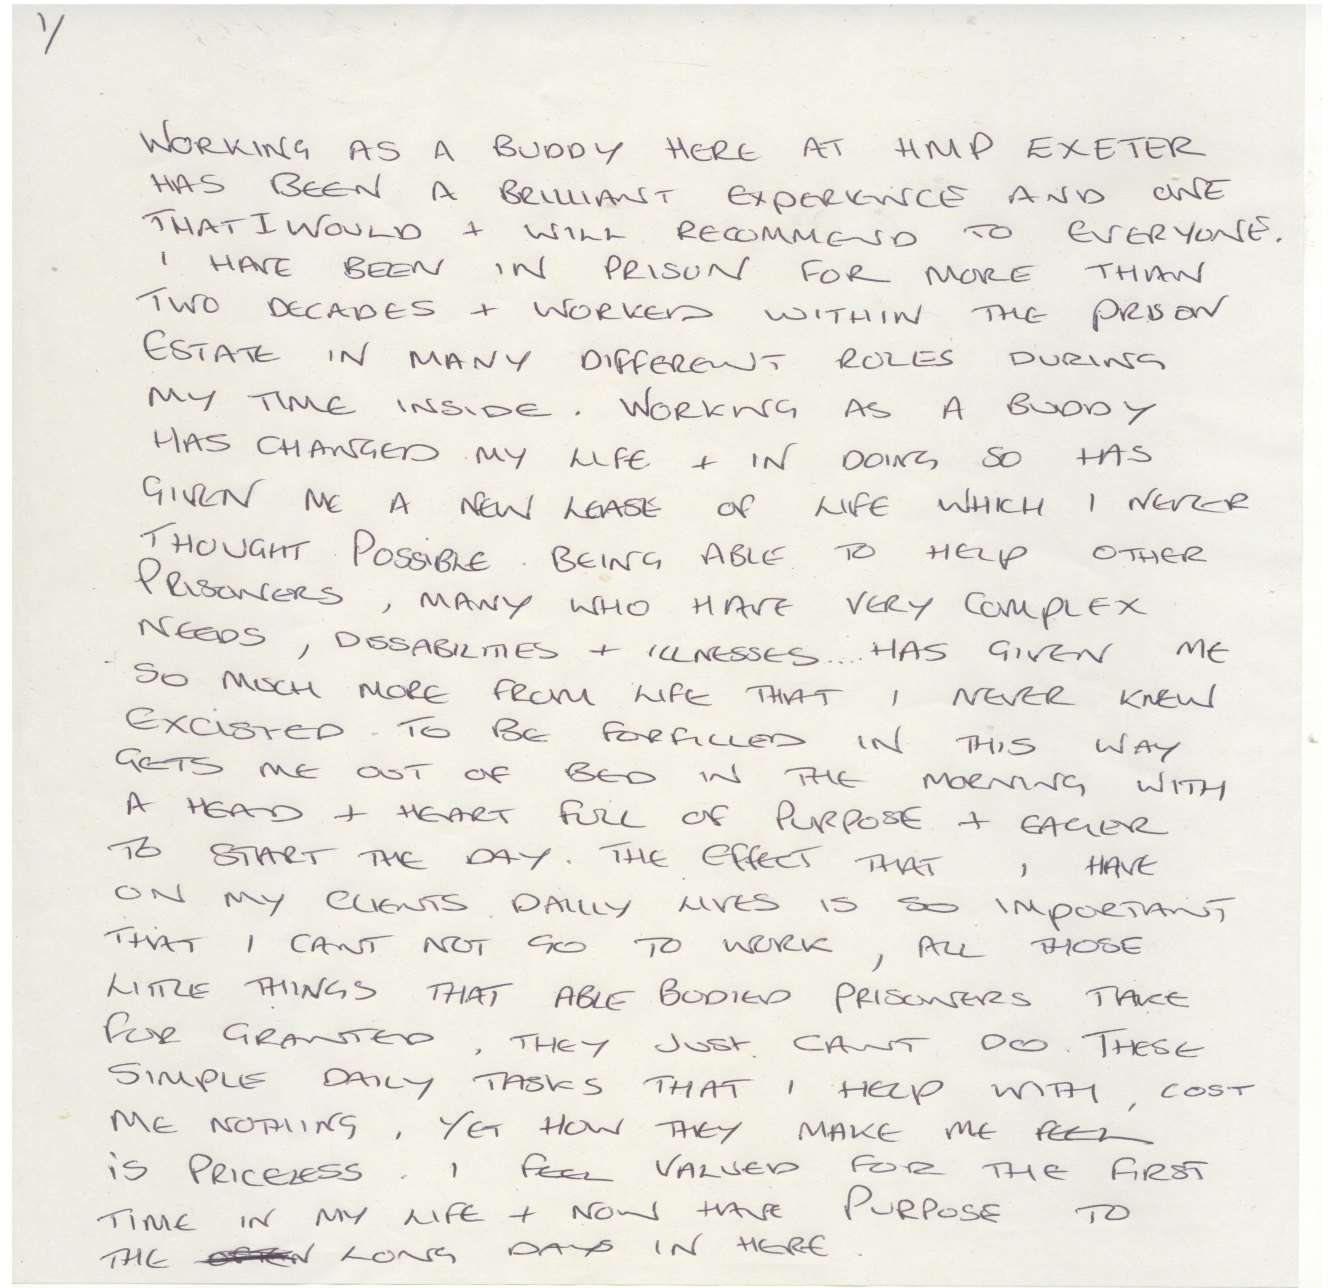 1/
WORKING AS A BUDDY HERE AT HMP EXETER
HAS BEEN A BRILLIANT EXPERIENCE AND ONE
THAT I WOULD + WILL RECOMMEND TO EVERYONE.
I HAVE BEEN IN PRISON FOR MORE THAN
TWO DECADES + WORKED WITHIN THE PRISON
ESTATE IN MANY DIFFERENT ROLES DURING
MY TIME INSIDE. WORKING AS A BUDDY
HAS CHANGED MY LIFE + IN DOING SO HAS
GIVEN ME A NEW LEASE OF LIFE WHICH I NEVER
THOUGHT POSSIBLE. BEING ABLE TO HELP OTHER
PRISONERS, MANY WHO HAVE VERY COMPLEX
NEEDS, DISSABILITIES + ILLNESSES.... HAS GIVEN ME
SO MUCH MORE FROM LIFE THAT I NEVER KNEW
EXCISTED. TO BE FORFILLED IN THIS WAY
GETS ME OUT OF BED IN THE MORNING WITH
A HEAD + HEART FULL OF PURPOSE + EAGER
TO START THE DAY. THE EFFECT THAT I HAVE
ON MY CLIENTS DAILLY LIVES IS SO IMPORTANT
THAT I CANT NOT GO TO WORK, ALL THOSE
LITTLE THINGS THAT ABLE BODIED PRISONERS TAKE
FOR GRANTED, THEY JUST CANT DO. THESE
SIMPLE DAILY TASKS THAT I HELP WITH, COST
ME NOTHING, YET HOW THEY MAKE ME FEEL
IS PRICELESS. I FEEL VALUED FOR THE FIRST
TIME IN MY LIFE + NOW HAVE PURPOSE TO
THE LONG DAYS IN HERE.